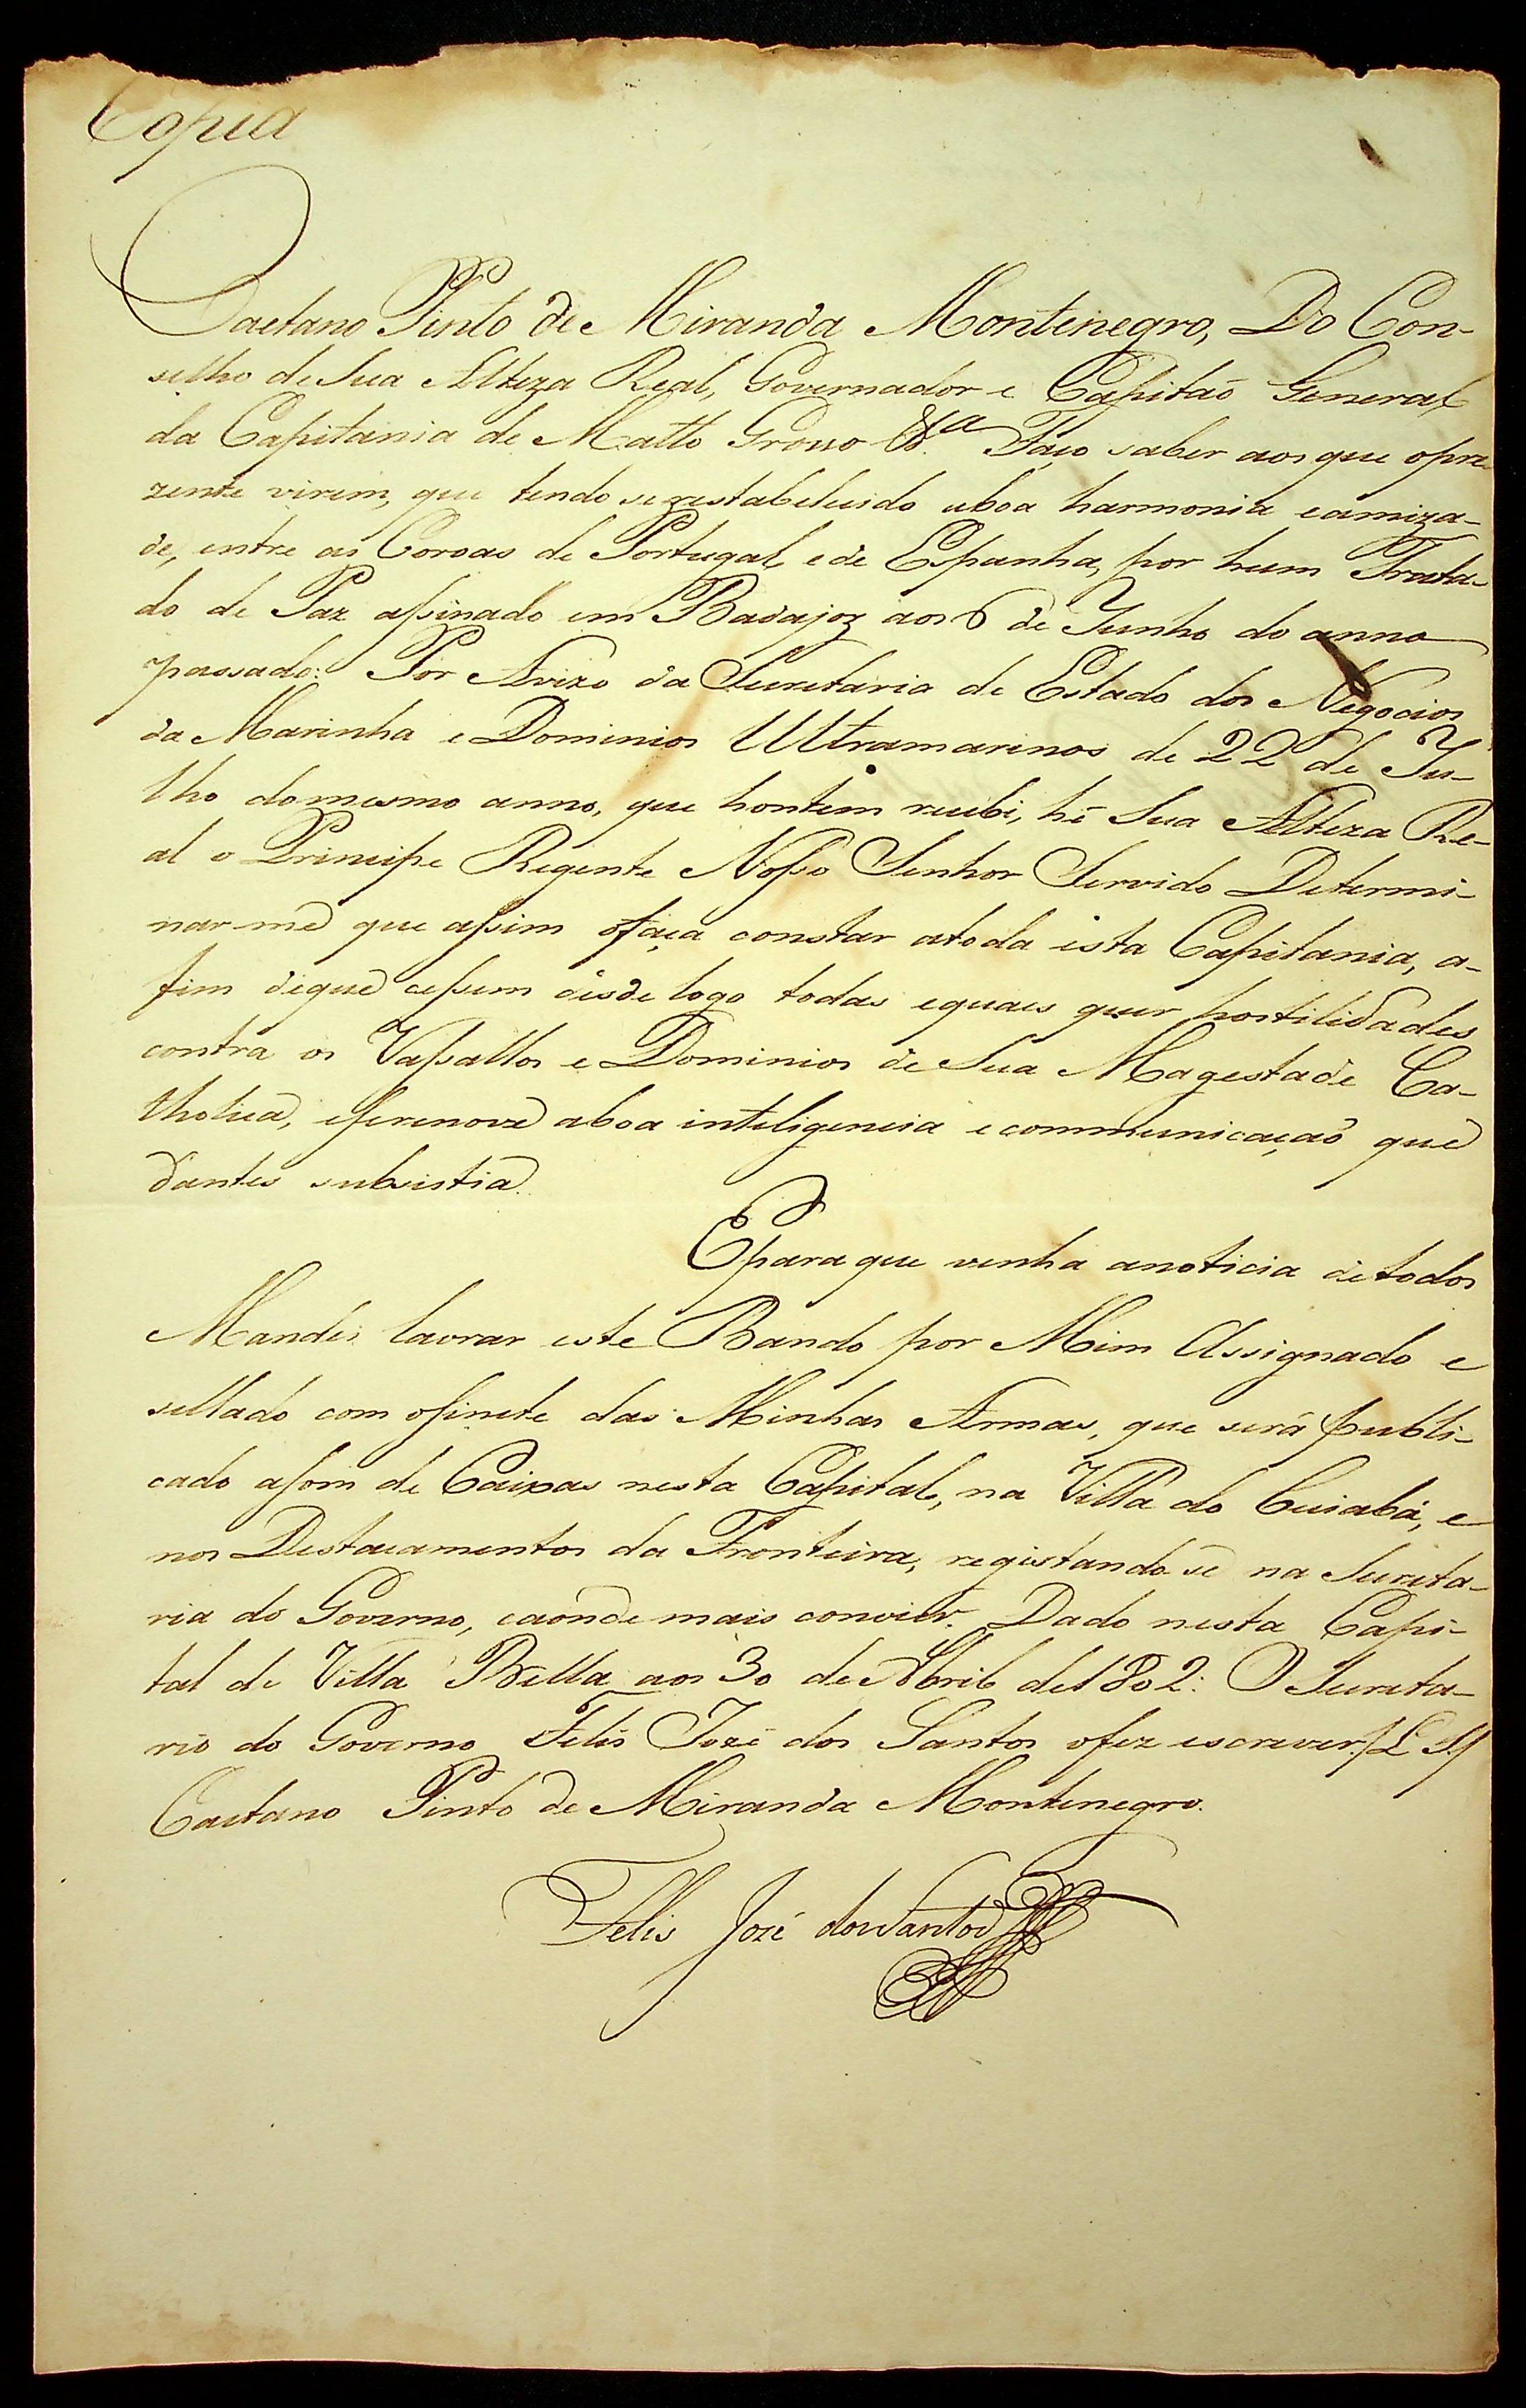 Copia
Caetano Pinto de Miranda Montenegro, Do Con-
selho de Sua Alteza Real, Governador e Capitaõ General
da Capitania de Matto Grosso &.ª Faço saber aos que opre-
zente virem, que tendo se restabelecido aboa harmonia eamiza-
de, entre as Coroas de Portugal, e de Espanha, por hum Trata-
do de Paz assinado em Badajoz aos 6 de Junho do anno
passado: Por Avizo da Secretaria de Estado dos Negocios
da Marinha e Dominios Ultramarinos de 22 de Ju-
lho domesmo anno, que hontem recebi, hé Sua Alteza Re-
al o Principe Regente Nosso Senhor Servido Determi-
nar-me que assim ofaça constar atoda esta Capitania, a-
fim deque cessem désde logo todas equaes quer hostilidades
contra os Vassallos e Dominios de Sua Magestade Ca-
tholica, eserenove aboa inteligencia ecommunicaçaõ que
dantes subsistia.
Epara que venha anoticia detodos
Mandei lavrar este Bando por Mim Assignado e
sellado com osinete das Minhas Armas, que será publi-
cado asom de Caixas nesta Capital, na Villa do Cuiabá, e
nos Destacamentos da Fronteira, registando-se na Secreta-
ria do Governo, eaonde mais convier. Dado nesta Capi-
tal de Villa Bella aos 30 de Abril de 1802: O Secreta-
rio do Governo Felis Jozé dos Santos ofez escrever. /L. S./
Caetano Pinto de Miranda Montenegro.
Felis Jozé dos Santos